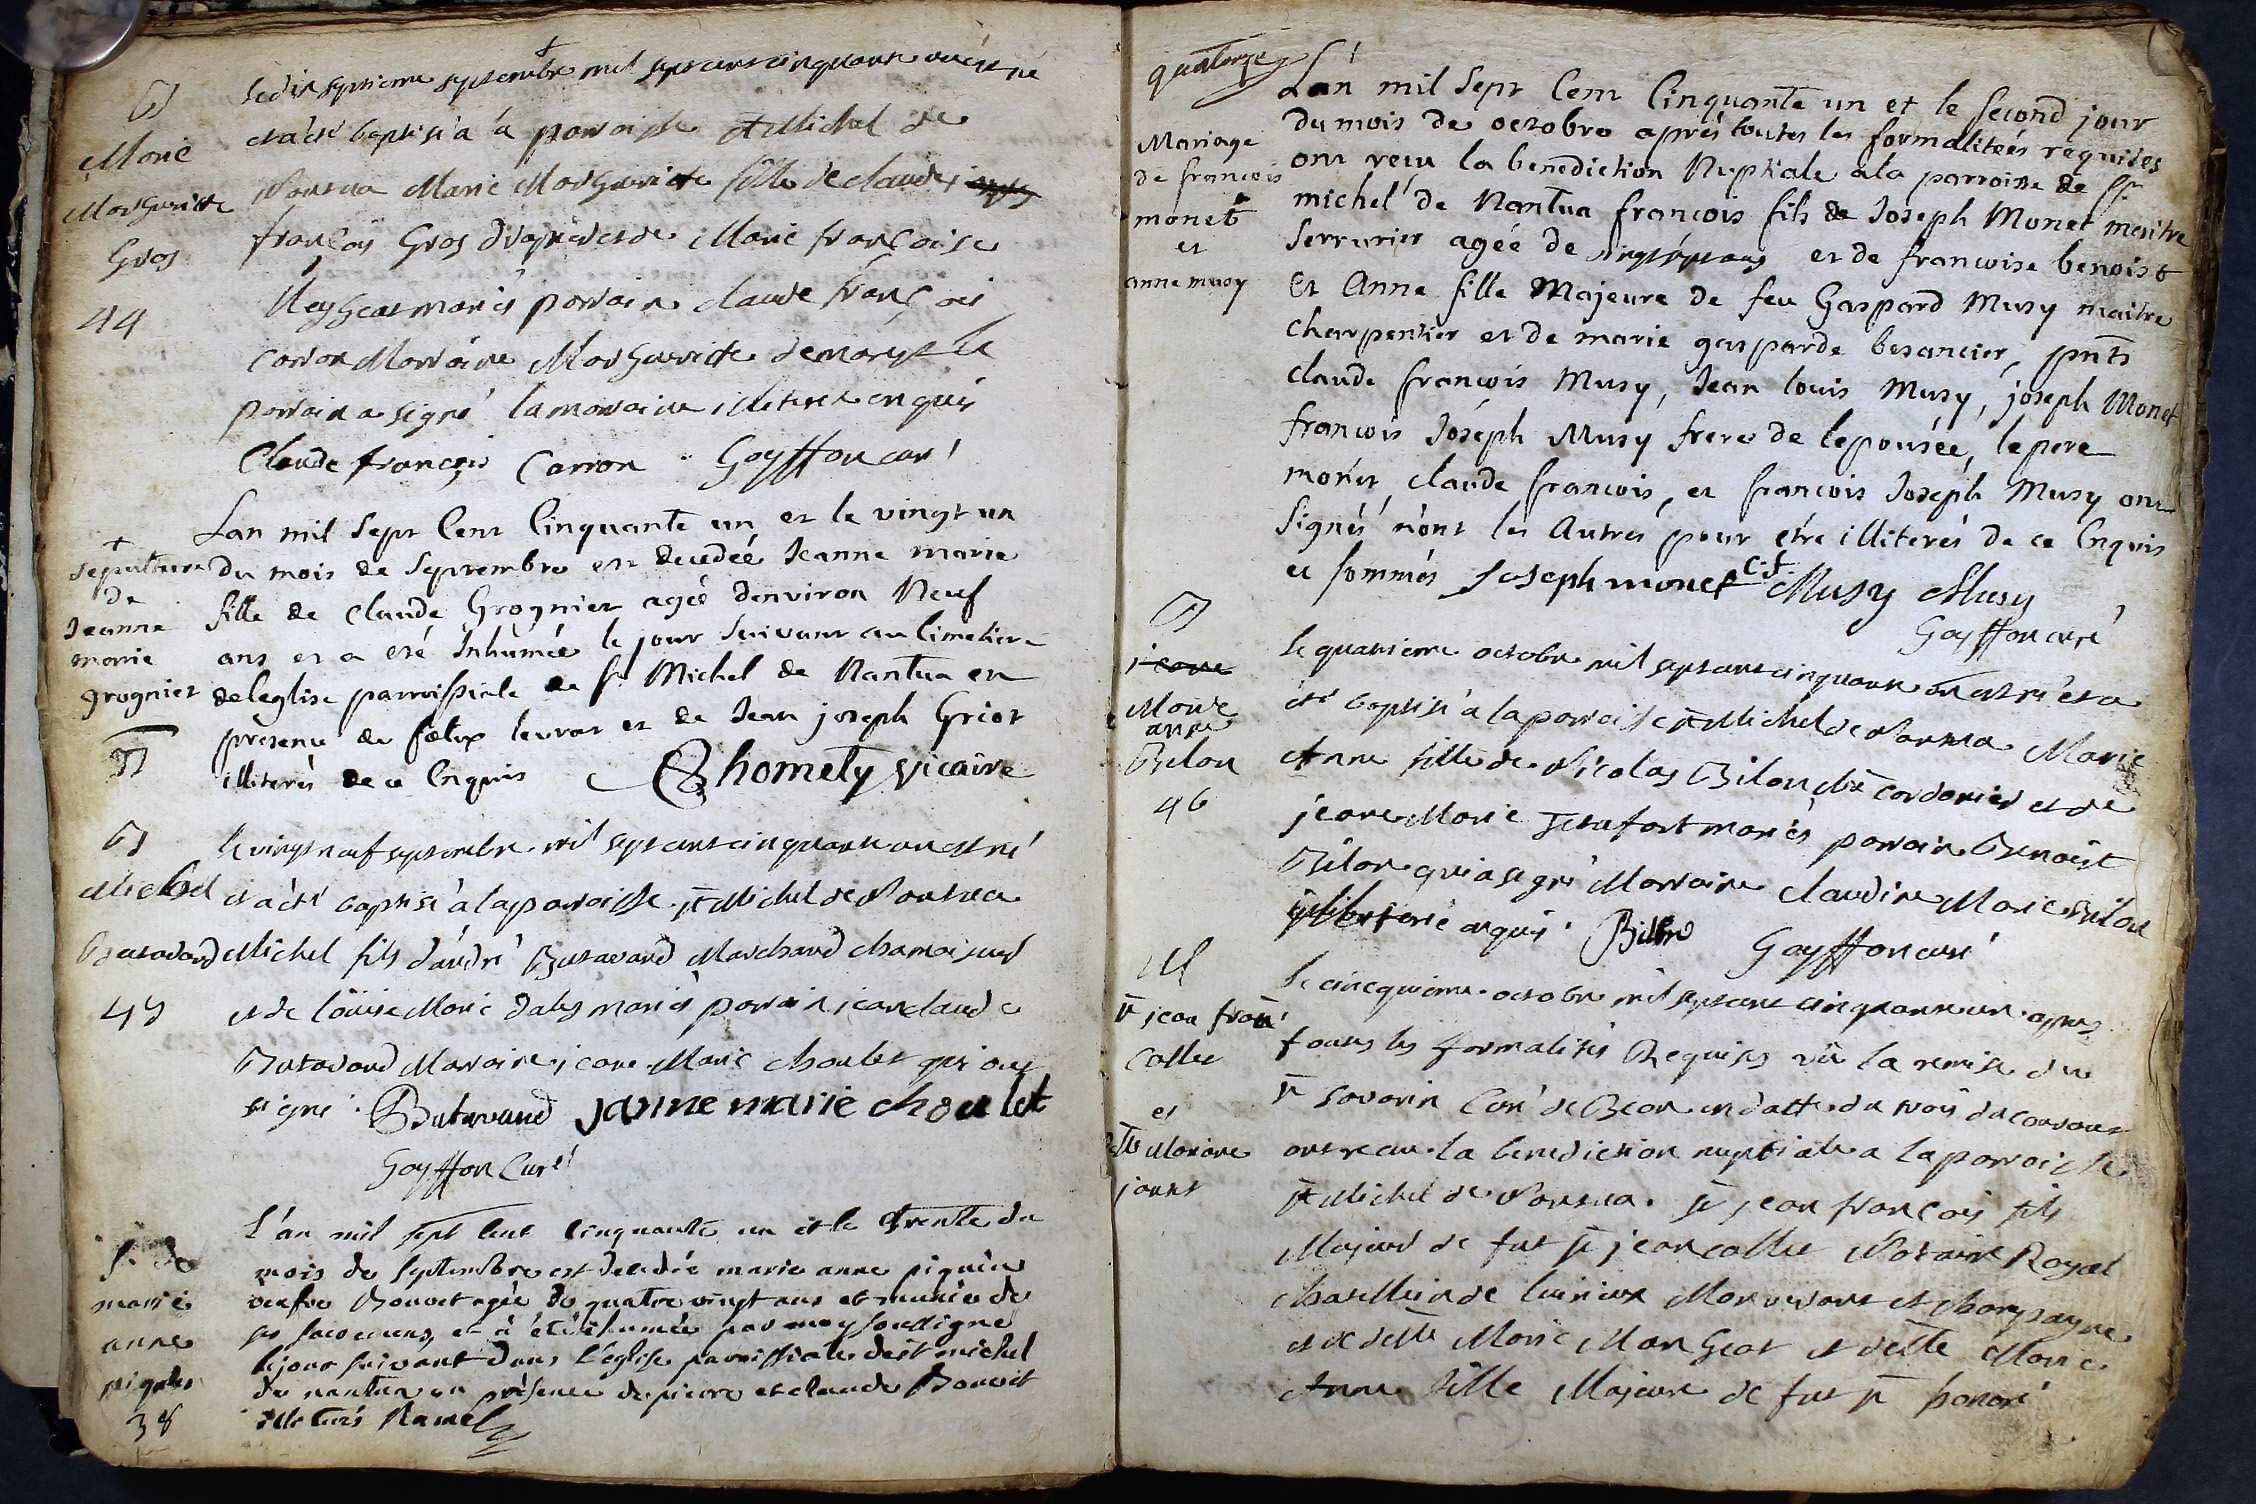 B
Marie
Margueritte
Gros
44
le dix septieme septembre mil sept cent cinquante un est né
et a été baptisé à la parroisse st Michel de
Nantua Marie Marguerite fille de claude
françois Gros drapier et de Marie françoise
mariés parrain claude françois
carron Marraine Marguerite
parrain a signé la marraine illiterée enquis
Claude françois Carron Gayffon curé
+
sepulture
de
Jeanne
marie
grognier
37
Lan mil sept Cent Cinquante un et le vingt un
du mois de Septembre est decedée Jeanne marie
fille de Claude Grognier agée denviron Neuf
ans et a eté Inhumée le jour Suivant au Cimetiere
de leglise parroissiale de st Michel de Nantua en
presence de foelix leurat et de Jean joseph Griot
illiterés de ce Enquis Thomety vicaire
B
Michel
Butavand
45
le vingt neuf septembre mil sept cent cinquante un est né
et a été baptisé à la parroisse st Michel de Nantua
Michel fils d'andré Butavand Marchand chamoiseur
et de loüise Marie dales mariés parrain jean claude
Butavand Marraine jeane Marie choulet qui ont
signé Butavand janne marie choulet
Gayffon Curé
S. de
marie
anne
38
L'an mil sept cent cinquante un et le trente du
mois de septembre est decedée marie anne
veufve Bouvet agée de quatre vingt ans et munie de
ses sacremens, et a été inhumée par moy soussigné
le jour suivant dans l'église parroissiale de st michel
de nantua en présence de pierre et claude Bouvet
illiterés Ramel
quatorze
Mariage
de francois
monet
et
anne musy
Lan mil Sept Cent Cinquante un et le second jour
du mois de octobre aprés toutes les formalitées requises
ont recu la benediction Nuptiale a la parroisse de st
michel de Nantua francois fils de Joseph Monet maitre
Serrurier agée de vingt sept ans et de francoise benoist
Et Anne fille Majeure de feu Gaspard Musy maitre
Charpentier et de marie gasparde besancier, pnts
claude francois Musy, Jean louis Musy, joseph Monet
francois Joseph Musy frere de lepousée, le pere
monet, claude francois, et francois Joseph Musy ont
Signés n'ont les Autres pour etre illiterés de ce Enquis
et sommés Joseph monet C.f. Musy Musy
Gayffon curé
B
jeane
Marie
anne
Bilon
46
le quatrieme octobre mil sept cent cinquante un est né et a
été baptisé à la parroisse st Michel de Nantua Marie
Anne fille de Nicolas Bilon Me cordonier et de
jeane Marie mariés parrain Benoist
Bilon qui a signé Marraine claudine Marie Bilon
illiterée enquis Billon Gayffon curé
M
sr jean fran
Collet
et
dlle Mariane
le cinquieme octobre mil sept cent cinquante un apres
toutes les formalités Requises vû la remise du
sr savarin Curé de Beon en datte du trois du courant
ont recu la benediction nuptiale a la parroisse
st Michel de Nantua sr jean françois fils
Majeur de fut sr jean collet Notaire Royal
Chatelain de Luirieux et champagne
et de dlle Marie et dlle Marie
Anne fille Majeure de fut sr honoré